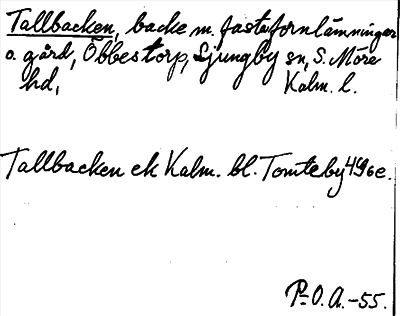 Tallbacken, backe m. fasta fornlämningar
o. gård, Öbbestorp, Ljungby sn, S. Möre
hd, Kalm. l.
Tallbacken ek Kalm. bl. Tomteby 4 g e.
P-O.A.-55.